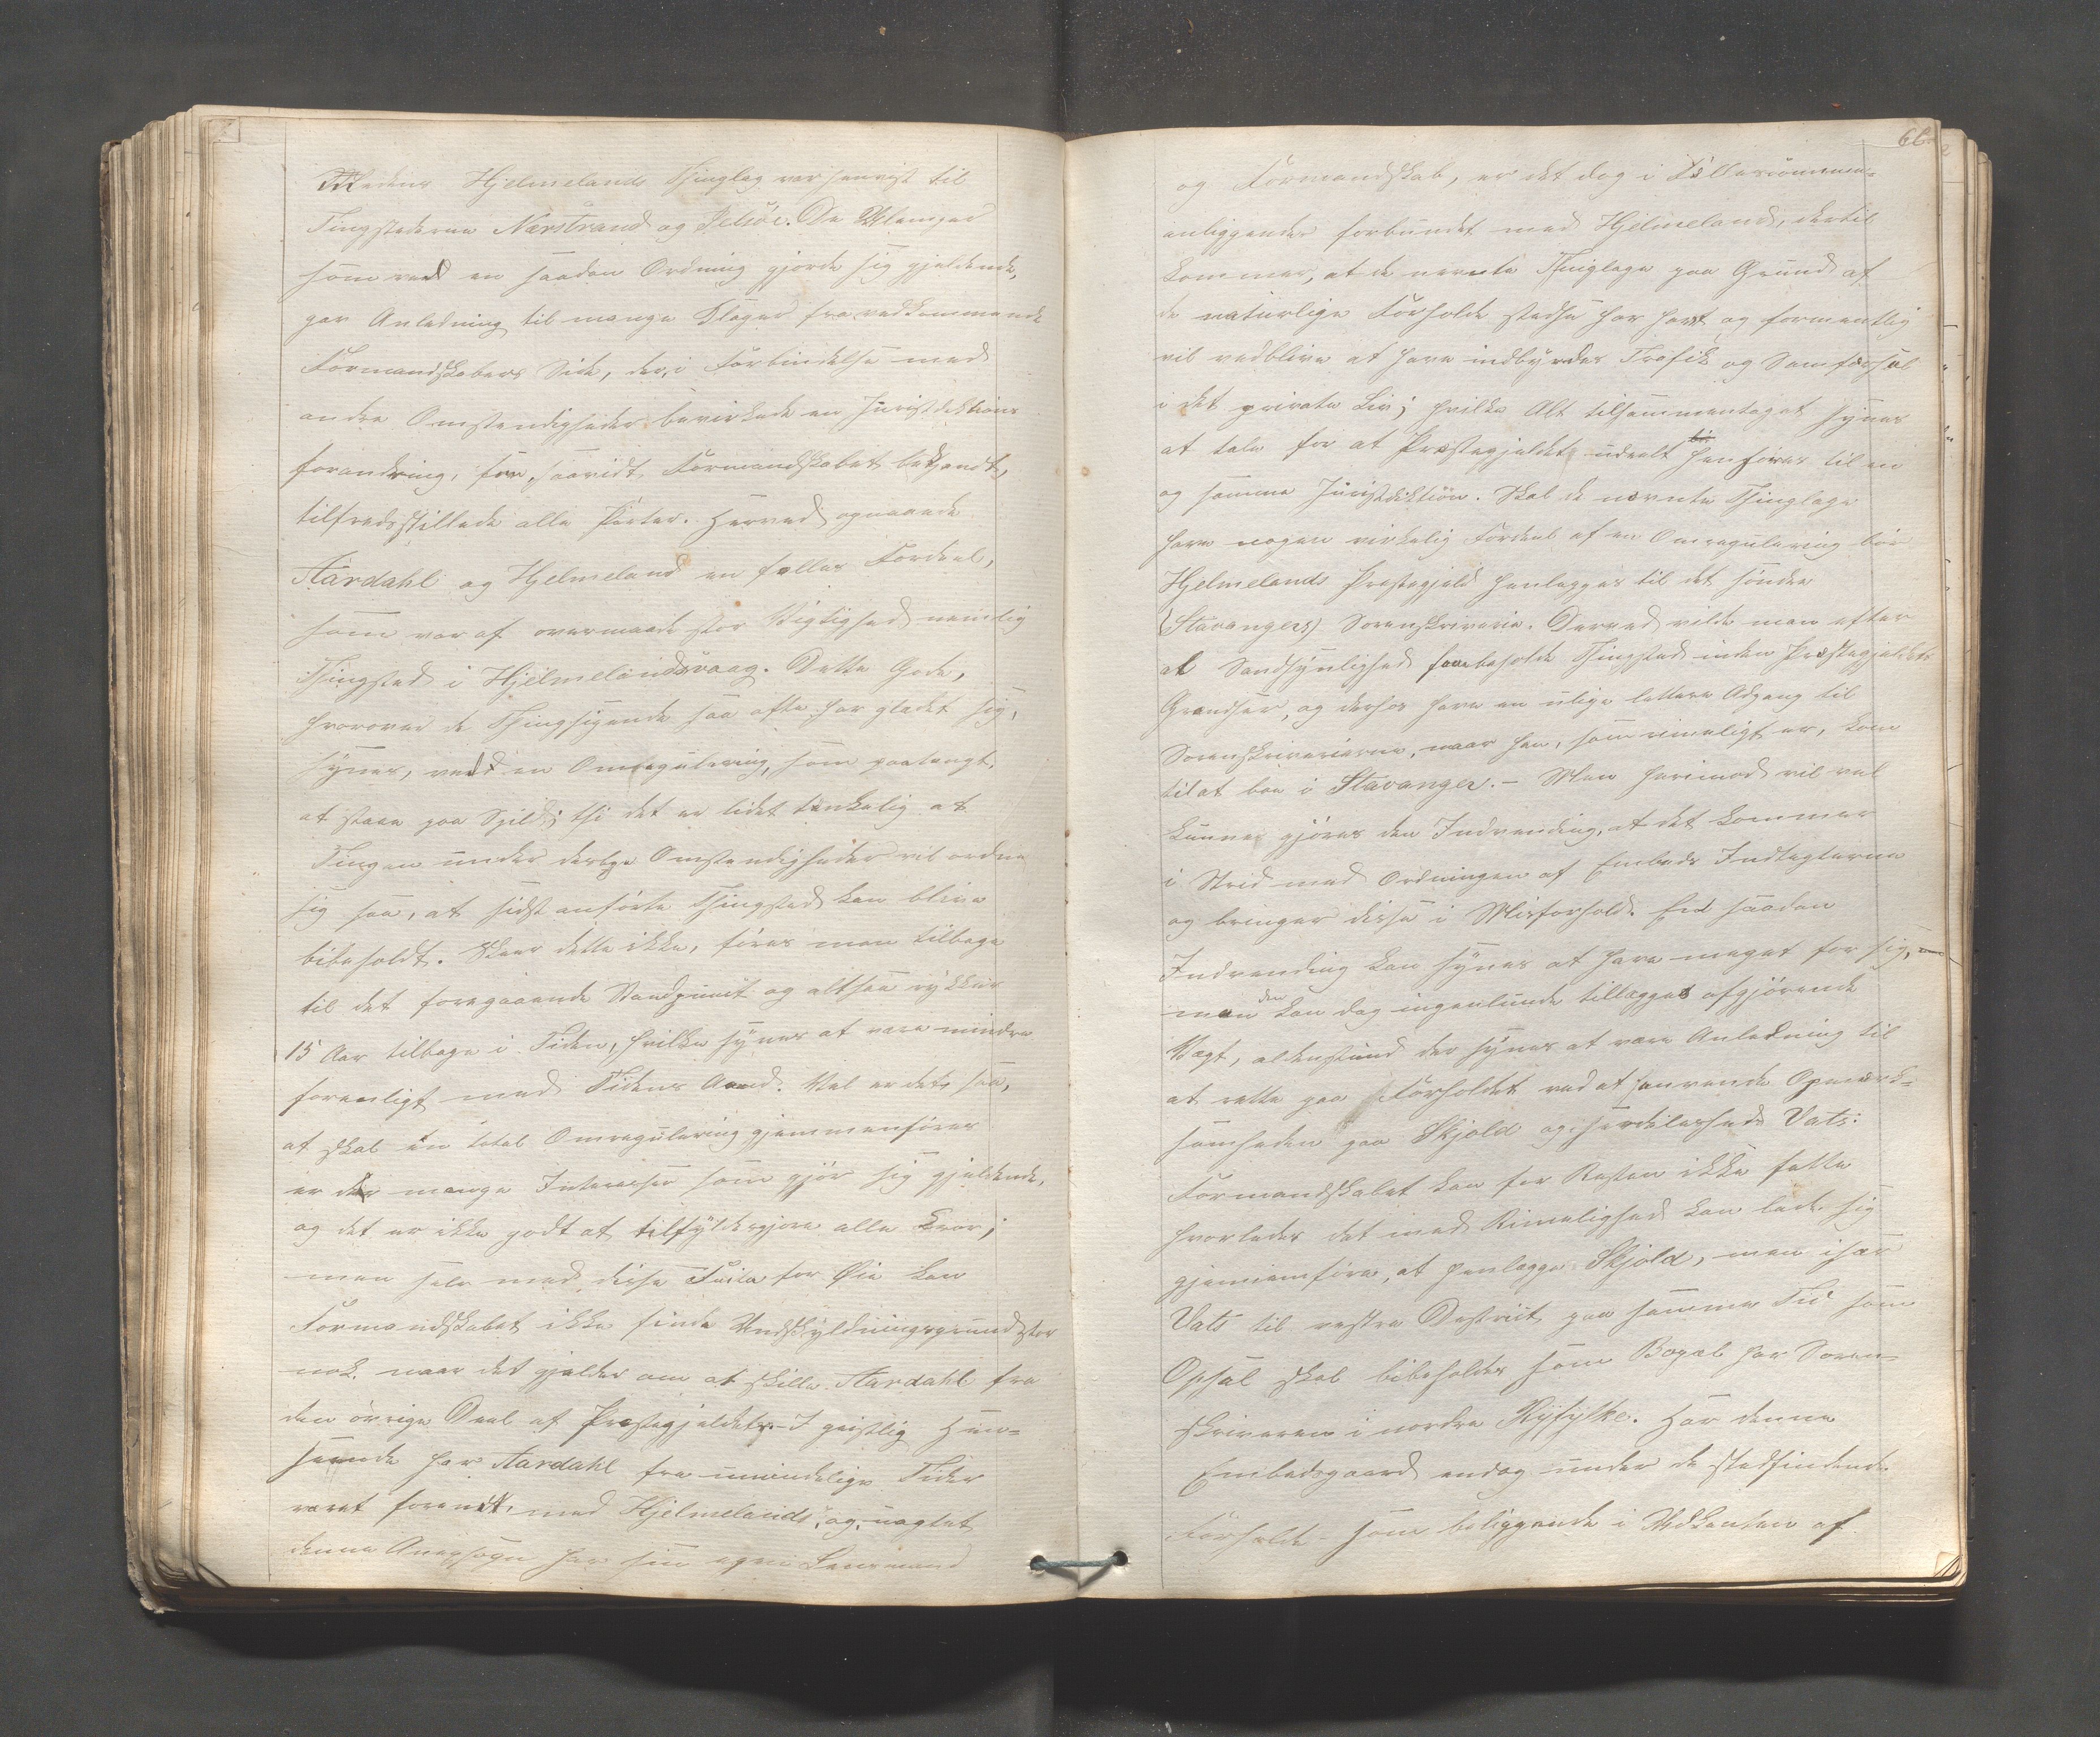 Medens Hjelmelands Thinglag var henvist til
Tingstederne Nærstrand og Jelsøe. De Ulemper
som ved en saadan Ordning gjorde sig gjeldende,
gav Anledning til mange Klager fra vedkommende
Formandskabers Side, der, i Forbindelse med
andre Omstendigheder bevirkede en Jurisdiktions
forandring, som, saavidt Formandskabet bekjendt,
tilfredsstillede alle Parter. Herved opnaaede
Aardahl og Hjelmeland en felles Fordeel,
som var af overmaade stor Vigtighed nemlig
Thingsted i Hjelmelandsvaag. Dette Gode,
hvorover de Thingsøgende saa ofte har gledet sig,
synes, ved en Omregulering, som paatenkt,
at staae paa Spild; thi det er lidet tenkelig at
Tingen under deslige Omstendigheder vil ordne
sig saa, at sidst anførte Thingsted kan blive
bibeholdt. Skeer dette ikke, føres man tilbage
til det foregaaende Standpunct og altsaa rykker
15 Aar tilbage i Tiden, hvilket synes at vere mindre
foreneligt med Tidens Aand. Vel er det saa,
at skal en total Omregulering gjennemføres
er der mange Interesser som gjør sig gjeldende,
og det er ikke godt at tilfyldesgjøre alle Krav;
men selv med disse Facta for Øie kan
Formandskabet ikke finde Undskyldningsgrund stor
nok, naar det gjelder om at skille Aardahl fra
den øvrige Deel af Prestegjeldet. I geistlig Hen-
seende har Aardahl fra umindelige Tider
veret forenet med Hjelmelands, og uagtet
denne Annexsogn har sin egen Lensmand
66.
og Formandskab, er det dog i Fellescommune-
anliggender forbundet med Hjelmeland, dertil
kommer, at de nevnte Thinglage paa Grund af
de naturlige Forholde stedse har havt og formentlig
vil vedblive at have indbyrdes Trafik og Samferdsel
i det private Liv; hvilket Alt tilsammentaget synes
at tale for at Prestegjeldet udeelt henføres til en
og samme Jurisdiktion. Skal de nevnte Thinglage
have nogen virkelig Fordeel af en Omregulering bør
Hjelmelands Prestegjeld henlegges til det søndre
(Stavangers) Sorenskriverie. Derved vilde man efter
al Sandsynlighed faae beholde Thingsted inden Prestegjeldets
Grendser, og derhos have en ulige lettere Adgang til
Sorenskriverierne, naar han, som rimeligt er, kom
til at boe i Stavanger. – Men herimod vil vel
kunne gjøres den Indvending, at det kommer
i Strid med Ordningen af Embeds Indtegterne
og bringer disse i Misforhold. En saadan
Indvending kan synes at have meget for sig,
men den kan dog ingenlunde tillegges afgjørende
Vegt, alenstund der synes at vere Anledning til
at rette paa Forholdet ved at henvende Opmerk-
somheden paa Skjold og iserdeleshed Vats.
Formandskabet kan for Resten ikke fatte
hvorledes det med Rimelighed kan lade sig
gjennemføre, at henlegge Skjold, men iser
Vats til vestre District paa samme Tid som
Opsal skal bibeholdes som Bopel for Soren-
skriveren i nordre Ryfylke. Har denne
Embedsgaard endog under de stedfindende
Forholde – som beliggende i Udkanten af